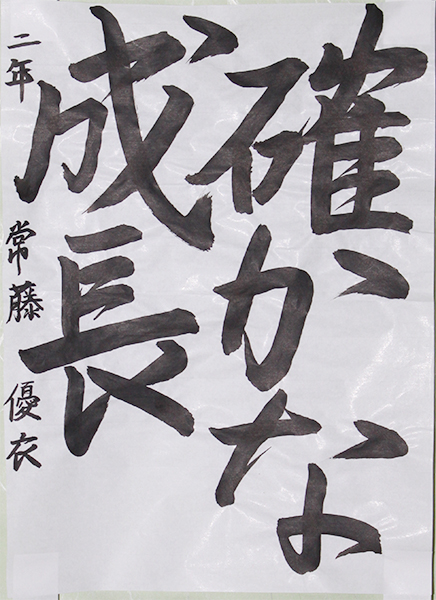 確かな
成長
二年 常藤 優衣